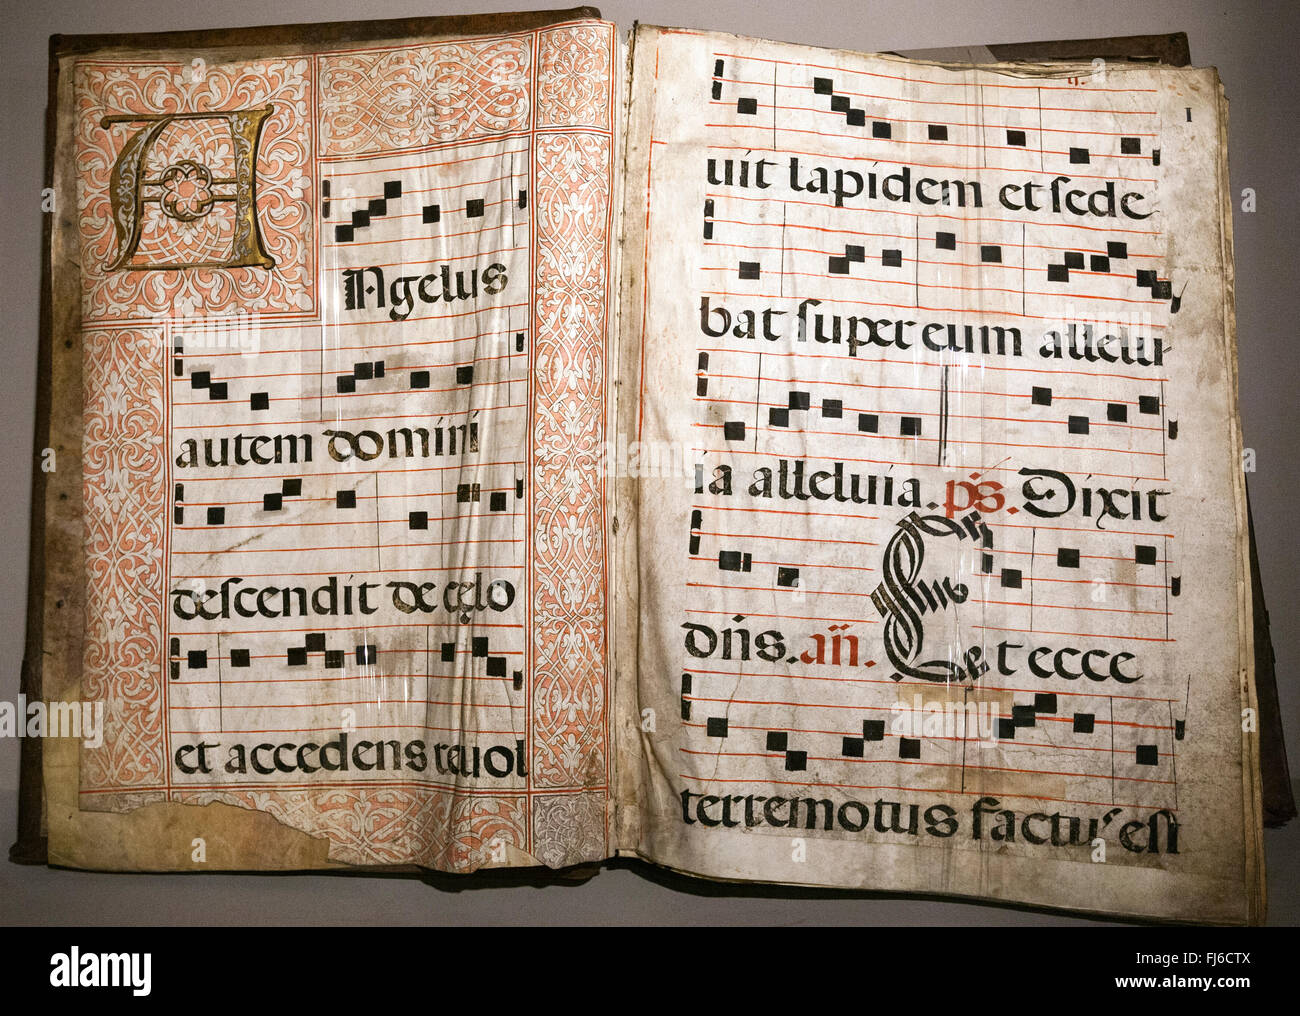 A
Angelus
autem domini
descendit de celo
et accedens revol
I
uit lapidem et sede
bat super eum allelu
ia alleluia. ps. Dixit
dñs. añ. Et ecce
terremotus factu' est
alamy
Image ID: FJ6CTX
www.alamy.com